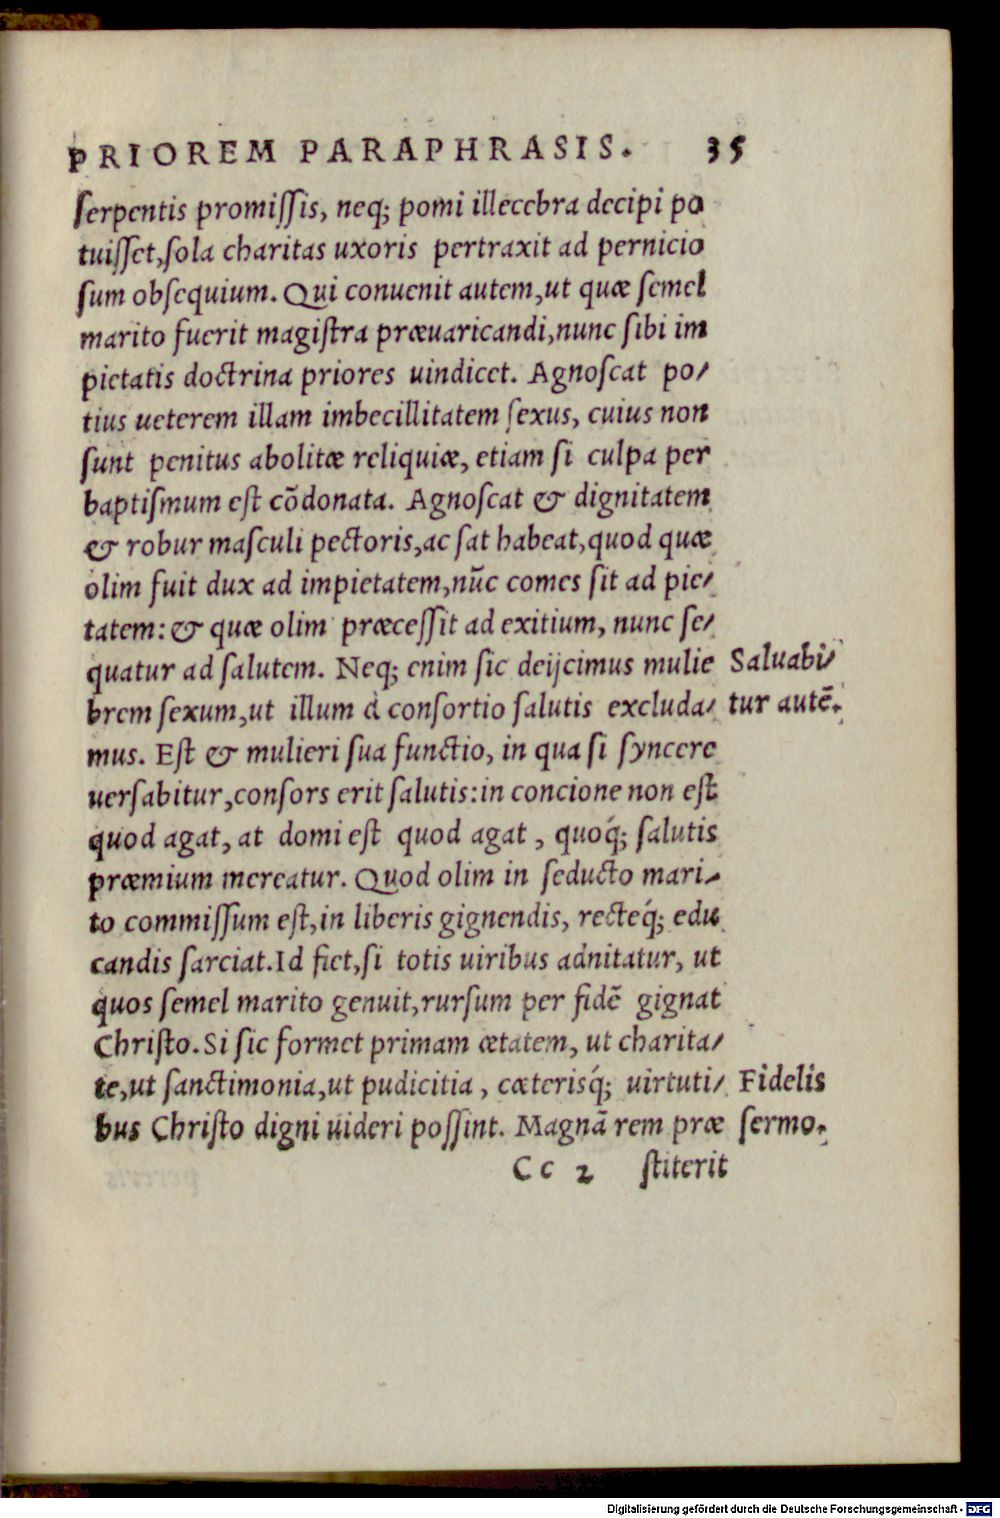 PRIOREM PARAPHRASIS. 35
ſerpentis promiſſis, neq; pomi illecebra decipi po
tuiſſet,ſola charitas uxoris pertraxit ad pernicio
ſum obſequium. Qui conuenit autem,ut quæ ſemel
marito fuerit magiſtra præuaricandi,nunc ſibi im
pietatis doctrina priores uindicet. Agnoſcat po/
tius ueterem illam imbecillitatem ſexus, cuius non
ſunt penitus abolitæ reliquiæ, etiam ſi culpa per
baptiſmum eſt cōdonata. Agnoſcat & dignitatem
& robur maſculi pectoris,ac ſat habeat,quod quæ
olim fuit dux ad impietatem,nūc comes ſit ad pie/
tatem: & quæ olim præceſſit ad exitium, nunc ſe/
quatur ad ſalutem. Neq; enim ſic deijcimus mulie Saluabi/
brem ſexum,ut illum à conſortio ſalutis excluda/ tur autē.
mus. Eſt & mulieri ſua functio, in qua ſi ſyncere
uerſabitur,conſors erit ſalutis:in concione non eſt
quod agat, at domi eſt quod agat, quoq́; ſalutis
præmium mereatur. Quod olim in ſeducto mari/
to commiſſum eſt,in liberis gignendis, recteq́; edu
candis ſarciat.Id fiet,ſi totis uiribus adnitatur, ut
quos ſemel marito genuit,rurſum per fidē gignat
Chriſto.Si ſic formet primam ætatem, ut charita/
te,ut ſanctimonia,ut pudicitia, cæterisq́; uirtuti/ Fidelis
bus Chriſto digni uideri poſſint. Magnā rem præ ſermo.
Cc 2 ſtiterit
Digitalisierung gefördert durch die Deutsche Forschungsgemeinschaft - DFG